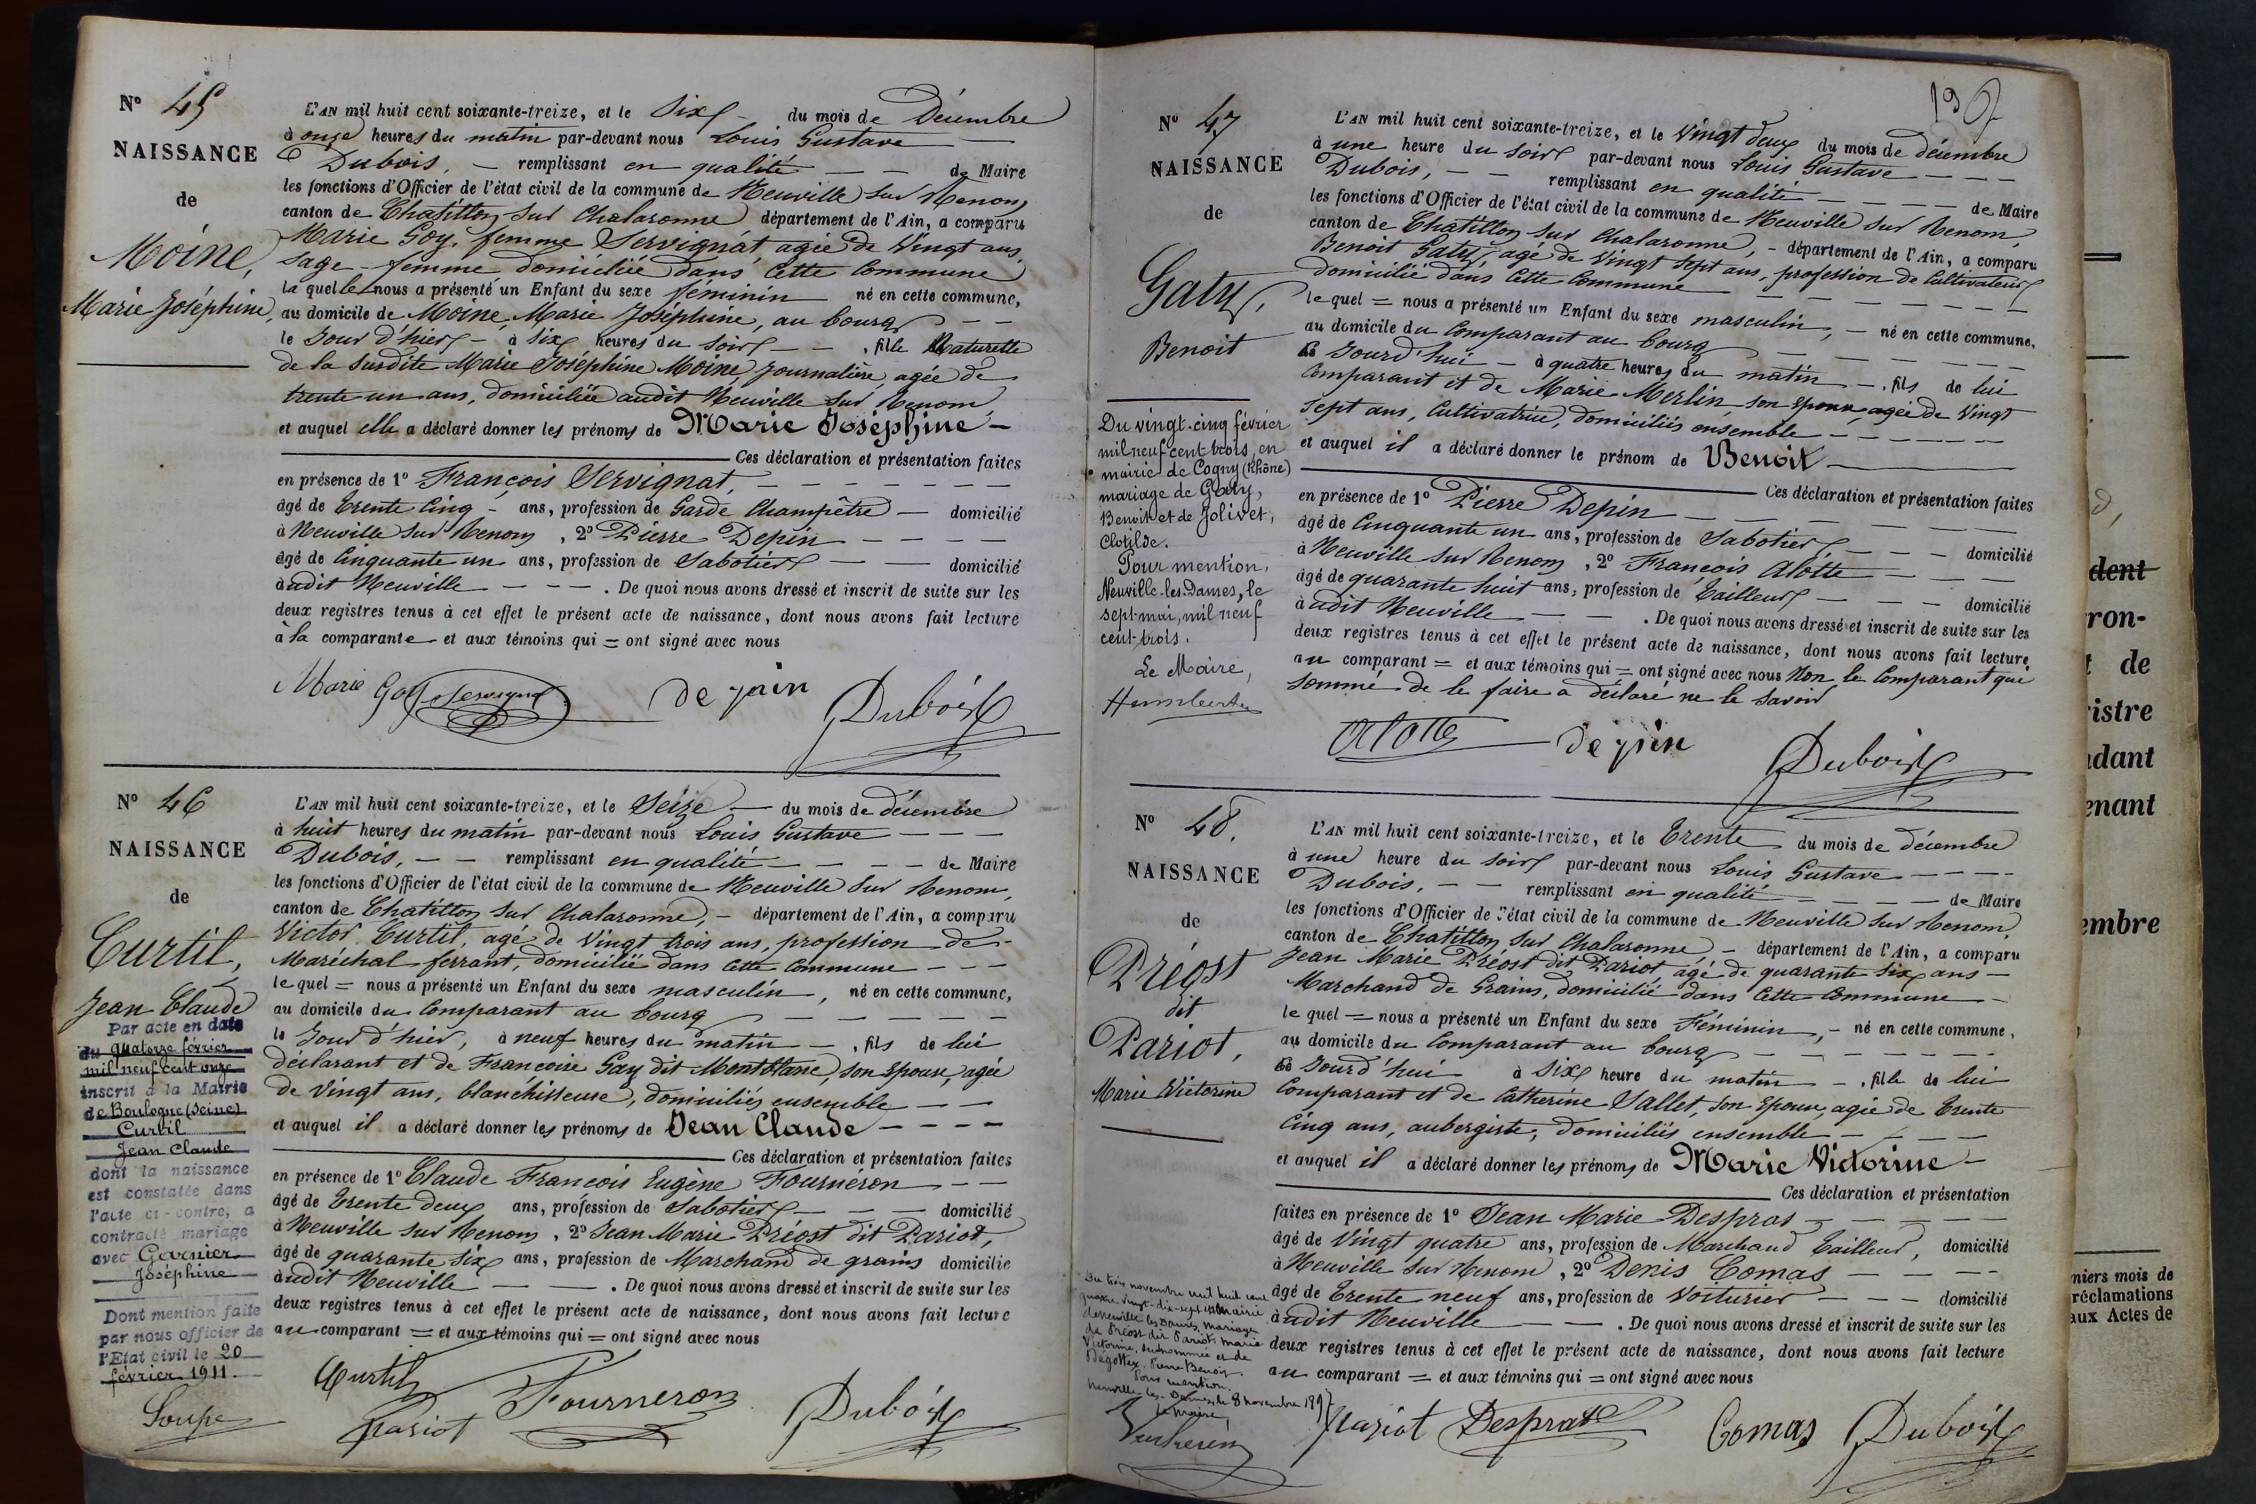 N° 45
NAISSANCE
de
Moine,
Marie Joséphine,
L'AN mil huit cent soixante-treize, et le Six du mois de Décembre
à onze heures du matin par-devant nous Louis Gustave
Dubois, remplissant en qualité de Maire
les fonctions d'Officier de l'état civil de la commune de Neuville sur Renom,
canton de Chatillon sur Chalaronne département de l'Ain, a comparu
Marie Goy, femme Servignat agée de Vingt ans,
Sage-femme domiciliée dans cette Commune
la quelle nous a présenté un Enfant du sexe féminin né en cette commune,
au domicile de Moine, Marie Joséphine, au bourg
le Jour d'hier à six heures du soir, fille Naturelle
de la susdite Marie Joséphine Moine, journalière, agée de
trente un ans, domiciliée audit Neuville sur Renom,
et auquel elle a déclaré donner les prénoms de Marie Joséphine
Ces déclaration et présentation faites
en présence de 1° François Servignat,
âgé de Trente Cinq ans, profession de Garde Champêtre domicilié
à Neuville sur Renom, 2° Pierre Depin
âgé de Cinquante un ans, profession de Sabotier domicilié
audit Neuville. De quoi nous avons dressé et inscrit de suite sur les
deux registres tenus à cet effet le présent acte de naissance, dont nous avons fait lecture
à la comparante et aux témoins qui = ont signé avec nous
Marie Goy f Servignat depin Dubois
N° 46
NAISSANCE
de
Curtil,
Jean Claude
Par acte en date
du quatorze février
mil neuf cent onze
inscrit à la Mairie
de Boulogne (Seine)
Curtil
Jean Claude
dont la naissance
est constatée dans
l'acte ci-contre, a
contracté mariage
avec
Joséphine
Dont mention faite
par nous officier de
l'Etat civil le 20
février 1911.
Soupe
L'AN mil huit cent soixante-treize, et le Seize du mois de décembre
à huit heures du matin par-devant nous Louis Gustave
Dubois, remplissant en qualité de Maire
les fonctions d'Officier de l'état civil de la commune de Neuville sur Renom,
canton de Chatillon sur Chalaronne, département de l'Ain, a comparu
Victor Curtil, agé de Vingt trois ans, profession de
Maréchal ferrant, domicilié dans cette commune
le quel = nous a présenté un Enfant du sexe masculin, né en cette commune,
au domicile du Comparant au bourg
le Jour d'hier, à neuf heures du matin, fils de lui
déclarant et de Francoise Gay dit Montblanc, son Epouse, agée
de Vingt ans, blanchisseuse, domiciliés ensemble
et auquel il a déclaré donner les prénoms de Jean Claude
Ces déclaration et présentation faites
en présence de 1° Claude François Eugène Fourneron
âgé de Trente deux ans, profession de Sabotier domicilié
à Neuville sur Renom, 2° Jean Marie Préost dit Pariot,
âgé de quarante six ans, profession de Marchand de grains domicilié
audit Neuville. De quoi nous avons dressé et inscrit de suite sur les
deux registres tenus à cet effet le présent acte de naissance, dont nous avons fait lecture
au comparant = et aux témoins qui = ont signé avec nous
Curtil Fourneron Dubois
Pariot
N° 47
NAISSANCE
de
Gaty,
Benoit
Du vingt-cinq février
mil neuf cent trois, en
mairie de Cogny (Rhône)
mariage de Gaty,
Benoit et de Jolivet,
Clotilde.
Pour mention,
Neuville-les-Dames, le
sept mai, mil neuf
cent trois.
Le Maire,
L'AN mil huit cent soixante-treize, et le Vingt deux du mois de décembre
à une heure du soir par-devant nous Louis Gustave
Dubois, remplissant en qualité de Maire
les fonctions d'Officier de l'état civil de la commune de Neuville sur Renom,
canton de Chatillon sur Chalaronne, département de l'Ain, a comparu
Benoit Gaty, agé de Vingt Sept ans, profession de Cultivateur
domicilié dans Cette Commune
le quel = nous a présenté un Enfant du sexe masculin, né en cette commune,
au domicile du Comparant au bourg
Jourd'hui à quatre heures du matin, fils de lui
Comparant et de Marie Merlin, son Epouse, agée de Vingt
Sept ans, Cultivatrice, domiciliés ensemble
et auquel il a déclaré donner le prénom de Benoit
Ces déclaration et présentation faites
en présence de 1° Pierre Depin
âgé de Cinquante un ans, profession de Sabotier domicilié
à Neuville sur Renom, 2° François Alotte
âgé de quarante huit ans, profession de Tailleur domicilié
audit Neuville. De quoi nous avons dressé et inscrit de suite sur les
deux registres tenus à cet effet le présent acte de naissance, dont nous avons fait lecture
au comparant = et aux témoins qui = ont signé avec nous Non le Comparant qui
sommé de le faire a déclaré ne le savoir
Alotte depin Dubois
N° 48.
NAISSANCE
de
Préost
dit
Pariot,
Marie Victorine
Du trois novembre mil huit cent
quatre-vingt-dix-sept mairie
de Neuville les Dames, mariage
de Préost dit Pariot, Marie
Victorine, susnommée et de
Pierre Benoit
Pour mention
Neuville-les-Dames le 8 novembre 1897
Le maire,
L'AN mil huit cent soixante-treize, et le Trente du mois de décembre
à une heure du soir par-devant nous Louis Gustave
Dubois, remplissant en qualité de Maire
les fonctions d'Officier de l'état civil de la commune de Neuville sur Renom,
canton de Chatillon sur Chalaronne, département de l'Ain, a comparu
Jean Marie Préost dit Pariot, agé de quarante six ans
Marchand de Grains, domicilié dans Cette Commune
le quel = nous a présenté un Enfant du sexe Féminin, né en cette commune,
au domicile du Comparant au bourg
Jourd'hui à six heure du matin, fille de lui
Comparant et de Catherine Sallet, son Epouse, agée de Trente
Cinq ans, aubergiste, domiciliés ensemble
et auquel il a déclaré donner les prénoms de Marie Victorine
Ces déclaration et présentation
faites en présence de 1° Jean Marie Despras
âgé de Vingt quatre ans, profession de Marchand Tailleur, domicilié
à Neuville sur Renom, 2° Denis Comas
âgé de Trente neuf ans, profession de Voiturier domicilié
audit Neuville. De quoi nous avons dressé et inscrit de suite sur les
deux registres tenus à cet effet le présent acte de naissance, dont nous avons fait lecture
au comparant = et aux témoins qui = ont signé avec nous
Pariot Despras Comas Dubois
dent
ron-
t de
istre
dant
enant
embre
niers mois de
réclamations
aux Actes de